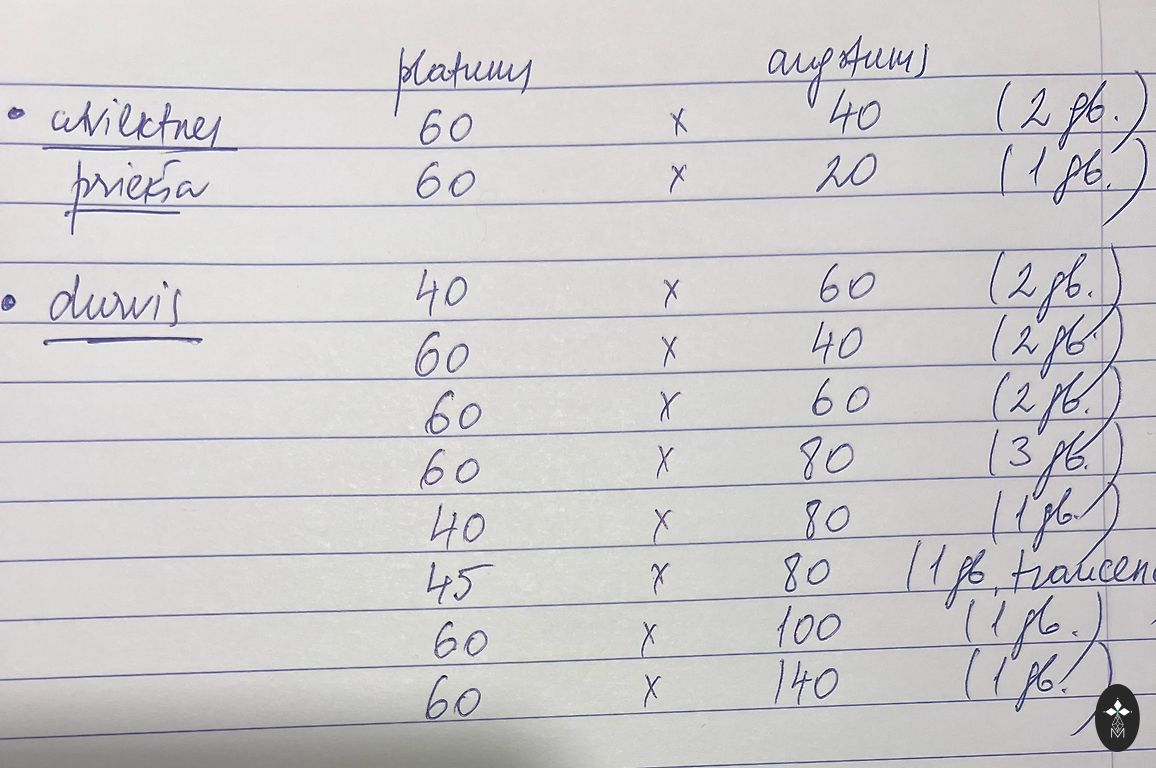 platums augstums
• atvilktnes 60 x 40 (2 gb.)
priekša 60 x 20 (1 gb.)
• durvis 40 x 60 (2 gb.)
60 x 40 (2 gb.)
60 x 60 (2 gb.)
60 x 80 (3 gb.)
40 x 80 (1 gb.)
45 x 80 (1 gb,
60 x 100 (1 gb.)
60 x 140 (1 gb.)
M